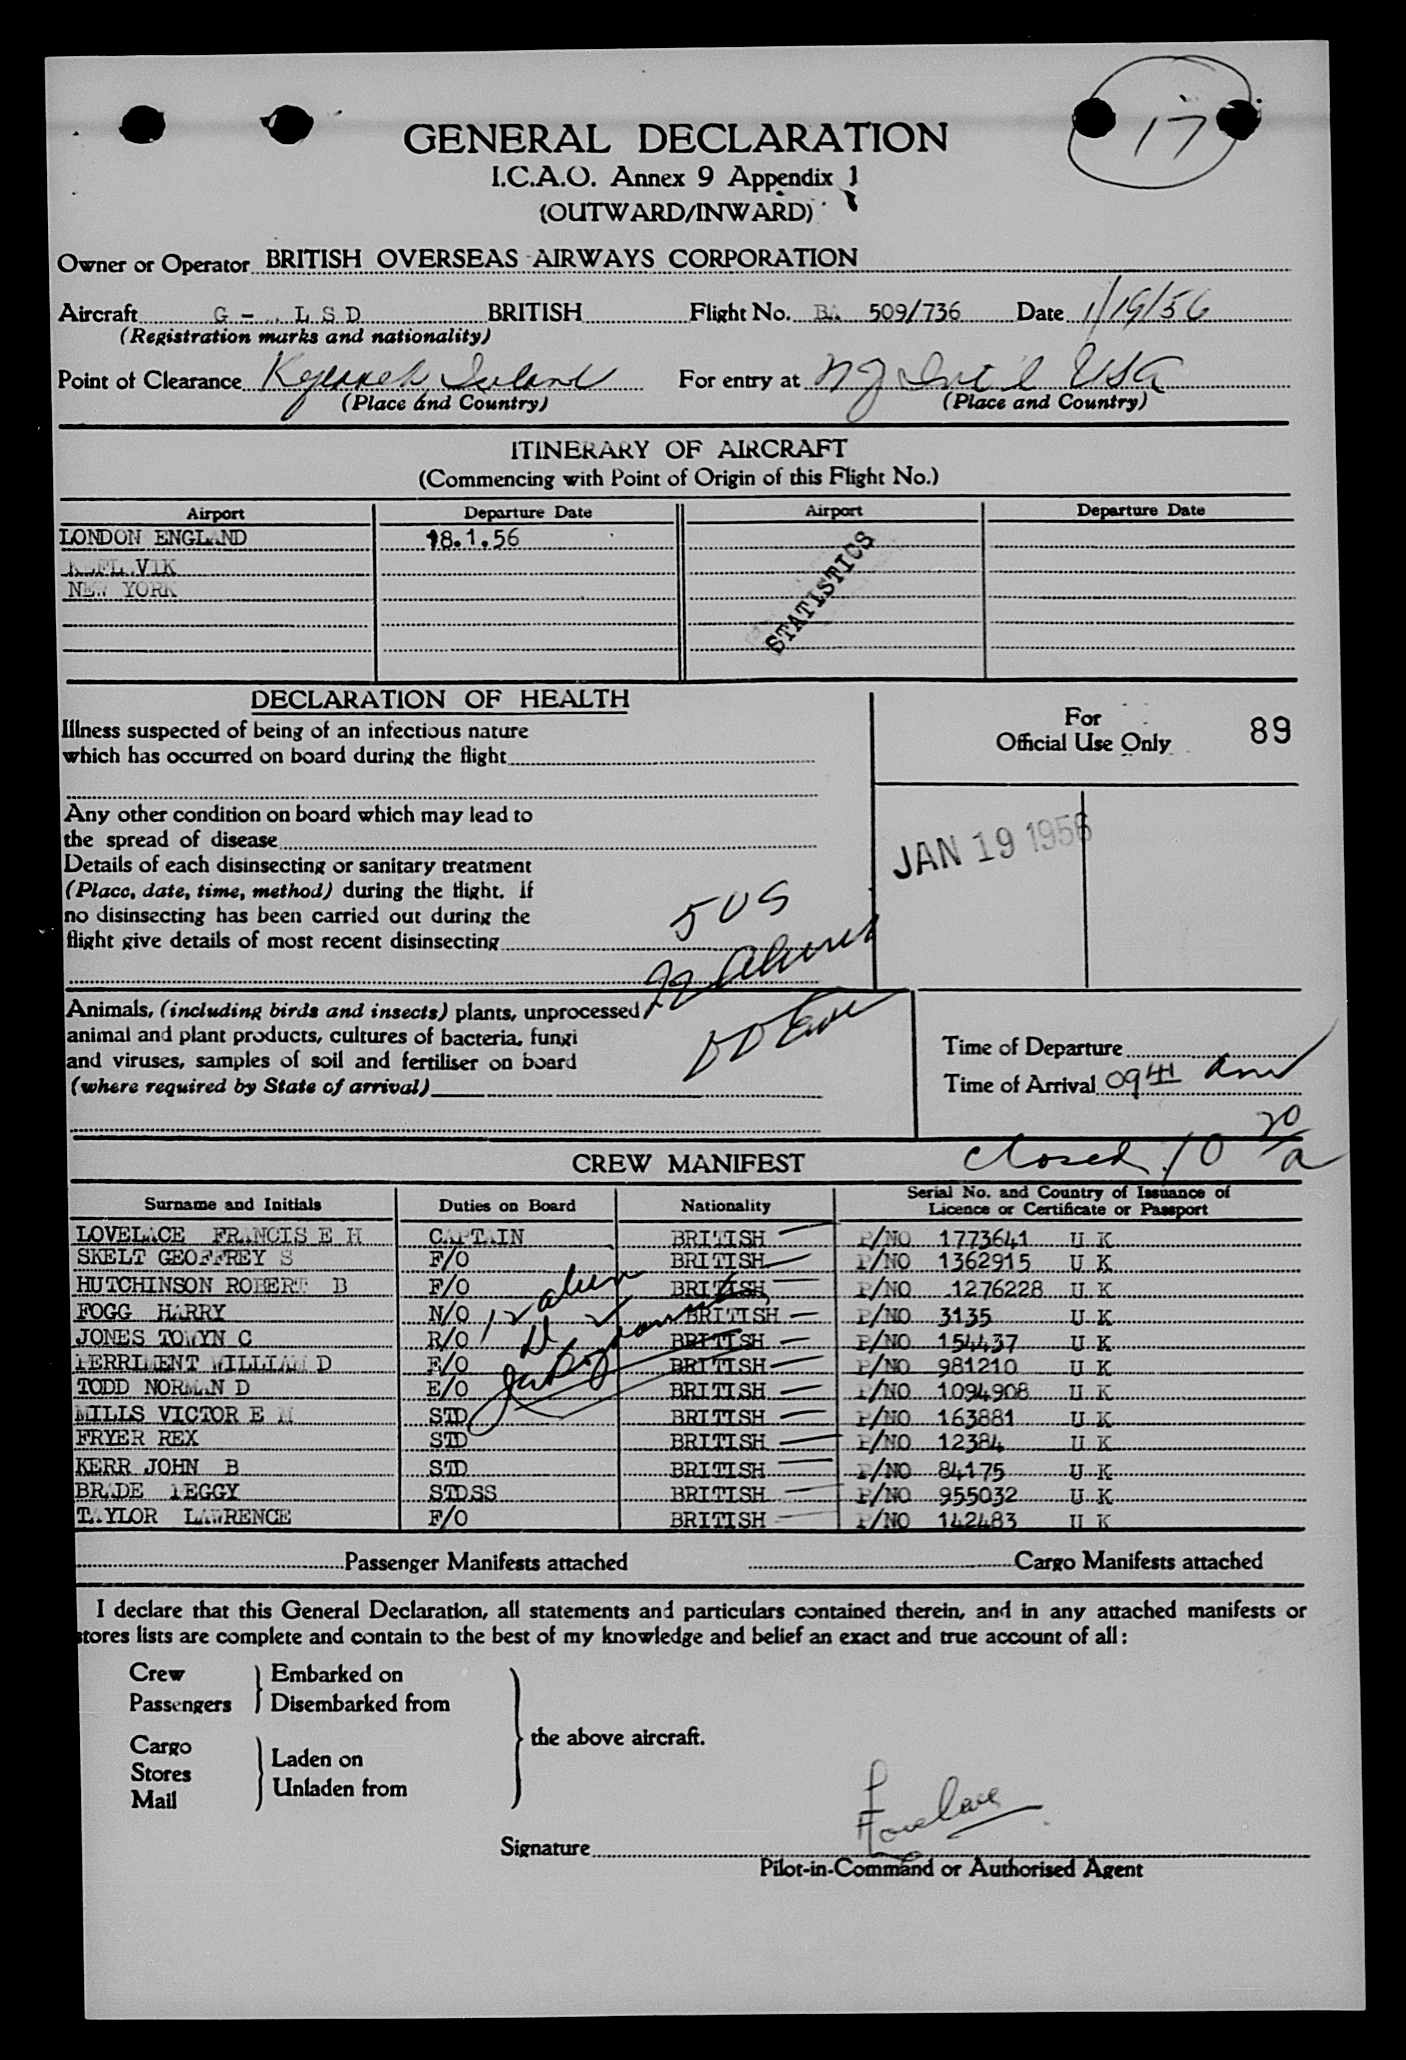 17
GENERAL DECLARATION
I.C.A.O. Annex 9 Appendix 1
(OUTWARD/INWARD)
Owner or Operator BRITISH OVERSEAS AIRWAYS CORPORATION
Aircraft G - L S D BRITISH Flight No. BA 509/736 Date 1/19/56
(Registration marks and nationality)
Point of Clearance For entry at NY Int'l USA
(Place and Country) (Place and Country)
ITINERARY OF AIRCRAFT
(Commencing with Point of Origin of this Flight No.)
Airport Departure Date Airport Departure Date
LONDON ENGLAND 18.1.56
KEFLAVIK
NEW YORK
STATISTICS
DECLARATION OF HEALTH
Illness suspected of being of an infectious nature
which has occurred on board during the flight
For
Official Use Only 89
Any other condition on board which may lead to
the spread of disease
JAN 19 1956
Details of each disinsecting or sanitary treatment
(Place, date, time, method) during the flight. If
no disinsecting has been carried out during the
flight give details of most recent disinsecting
5 US
22 Aliens
Animals, (including birds and insects) plants, unprocessed
animal and plant products, cultures of bacteria, fungi
and viruses, samples of soil and fertiliser on board
(where required by State of arrival)
Time of Departure
Time of Arrival 09
closed 10 20/a
CREW MANIFEST
Surname and Initials Duties on Board Nationality Serial No. and Country of Issuance of Licence or Certificate or Passport
LOVELACE FRANCIS E H CAPTAIN BRITISH P/NO 1773641 U K
SKELT GEOFFREY S F/O BRITISH P/NO 1362915 U K
HUTCHINSON ROBERT B F/O BRITISH P/NO 1276228 U K
FOGG HARRY N/O BRITISH P/NO 3135 U K
JONES TOWYN C R/O BRITISH P/NO 154437 U K
MERRIMENT WILLIAM D E/O BRITISH P/NO 981210 U K
TODD NORMAN D E/O BRITISH P/NO 1094908 U K
MILLS VICTOR E M STD BRITISH P/NO 163881 U K
FRYER REX STD BRITISH P/NO 12384 U K
KERR JOHN B STD BRITISH P/NO 84175 U K
BRADE PEGGY STDSS BRITISH P/NO 955032 U K
TAYLOR LAWRENCE F/O BRITISH P/NO 142483 U K
12 alien
Passenger Manifests attached Cargo Manifests attached
I declare that this General Declaration, all statements and particulars contained therein, and in any attached manifests or
stores lists are complete and contain to the best of my knowledge and belief an exact and true account of all:
Crew Embarked on
Passengers Disembarked from
the above aircraft.
Cargo Laden on
Stores Unladen from
Mail
Signature Lovelace
Pilot-in-Command or Authorised Agent